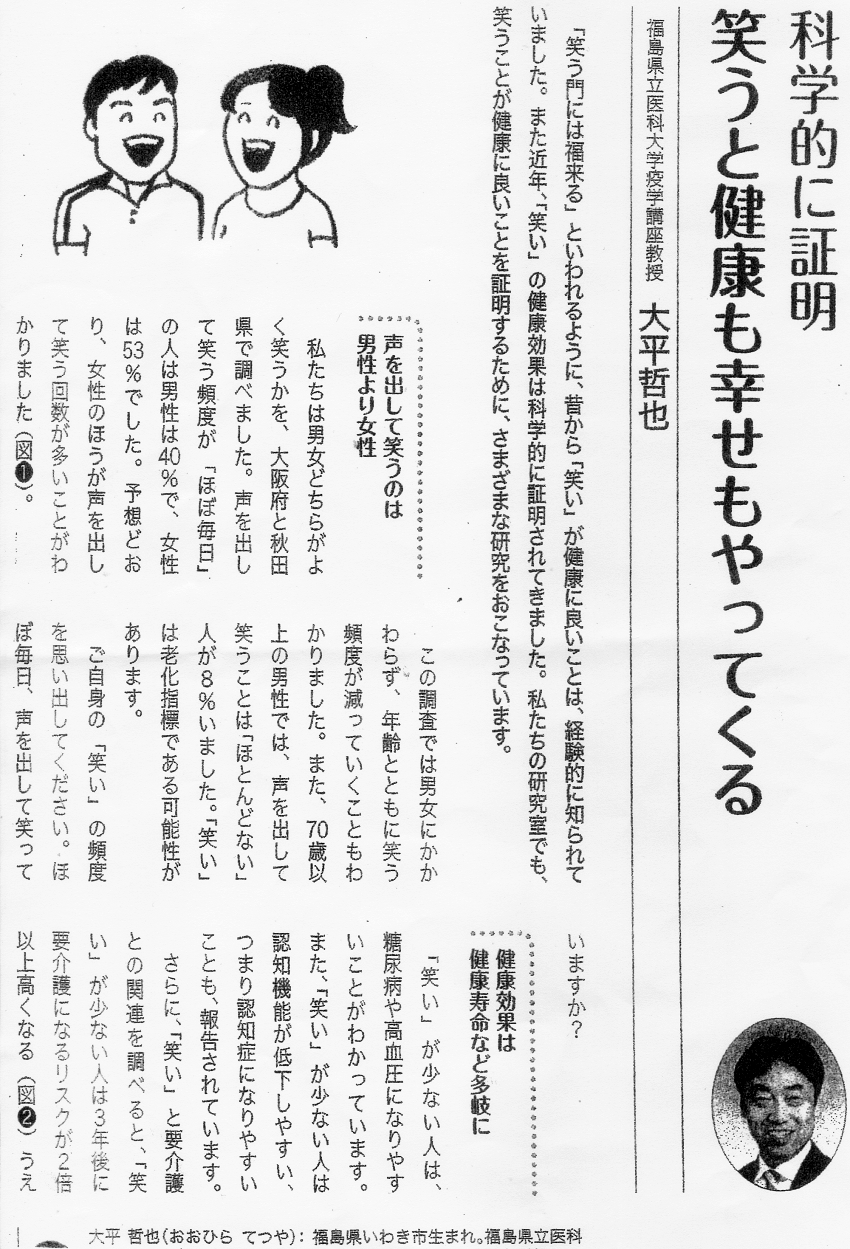 科学的に証明
笑うと健康も幸せもやってくる
福島県立医科大学疫学講座教授 大平哲也
「笑う門には福来る」といわれるように、昔から「笑い」が健康に良いことは、経験的に知られて
いました。また近年、「笑い」の健康効果は科学的に証明されてきました。私たちの研究室でも、
笑うことが健康に良いことを証明するために、さまざまな研究をおこなっています。
声を出して笑うのは
男性より女性
私たちは男女どちらがよ
く笑うかを、大阪府と秋田
県で調べました。声を出し
て笑う頻度が「ほぼ毎日」
の人は男性は40%で、女性
は53%でした。予想どお
り、女性のほうが声を出し
て笑う回数が多いことがわ
かりました(図❶)。
この調査では男女にかか
わらず、年齢とともに笑う
頻度が減っていくこともわ
かりました。また、70歳以
上の男性では、声を出して
笑うことは「ほとんどない」
人が8%いました。「笑い」
は老化指標である可能性が
あります。
ご自身の「笑い」の頻度
を思い出してください。ほ
ぼ毎日、声を出して笑って
いますか?
健康効果は
健康寿命など多岐に
「笑い」が少ない人は、
糖尿病や高血圧になりやす
いことがわかっています。
また、「笑い」が少ない人は
認知機能が低下しやすい、
つまり認知症になりやすい
ことも、報告されています。
さらに、「笑い」と要介護
との関連を調べると、「笑
い」が少ない人は3年後に
要介護になるリスクが2倍
以上高くなる(図❷)うえ
大平 哲也(おおひら てつや):福島県いわき市生まれ。福島県立医科